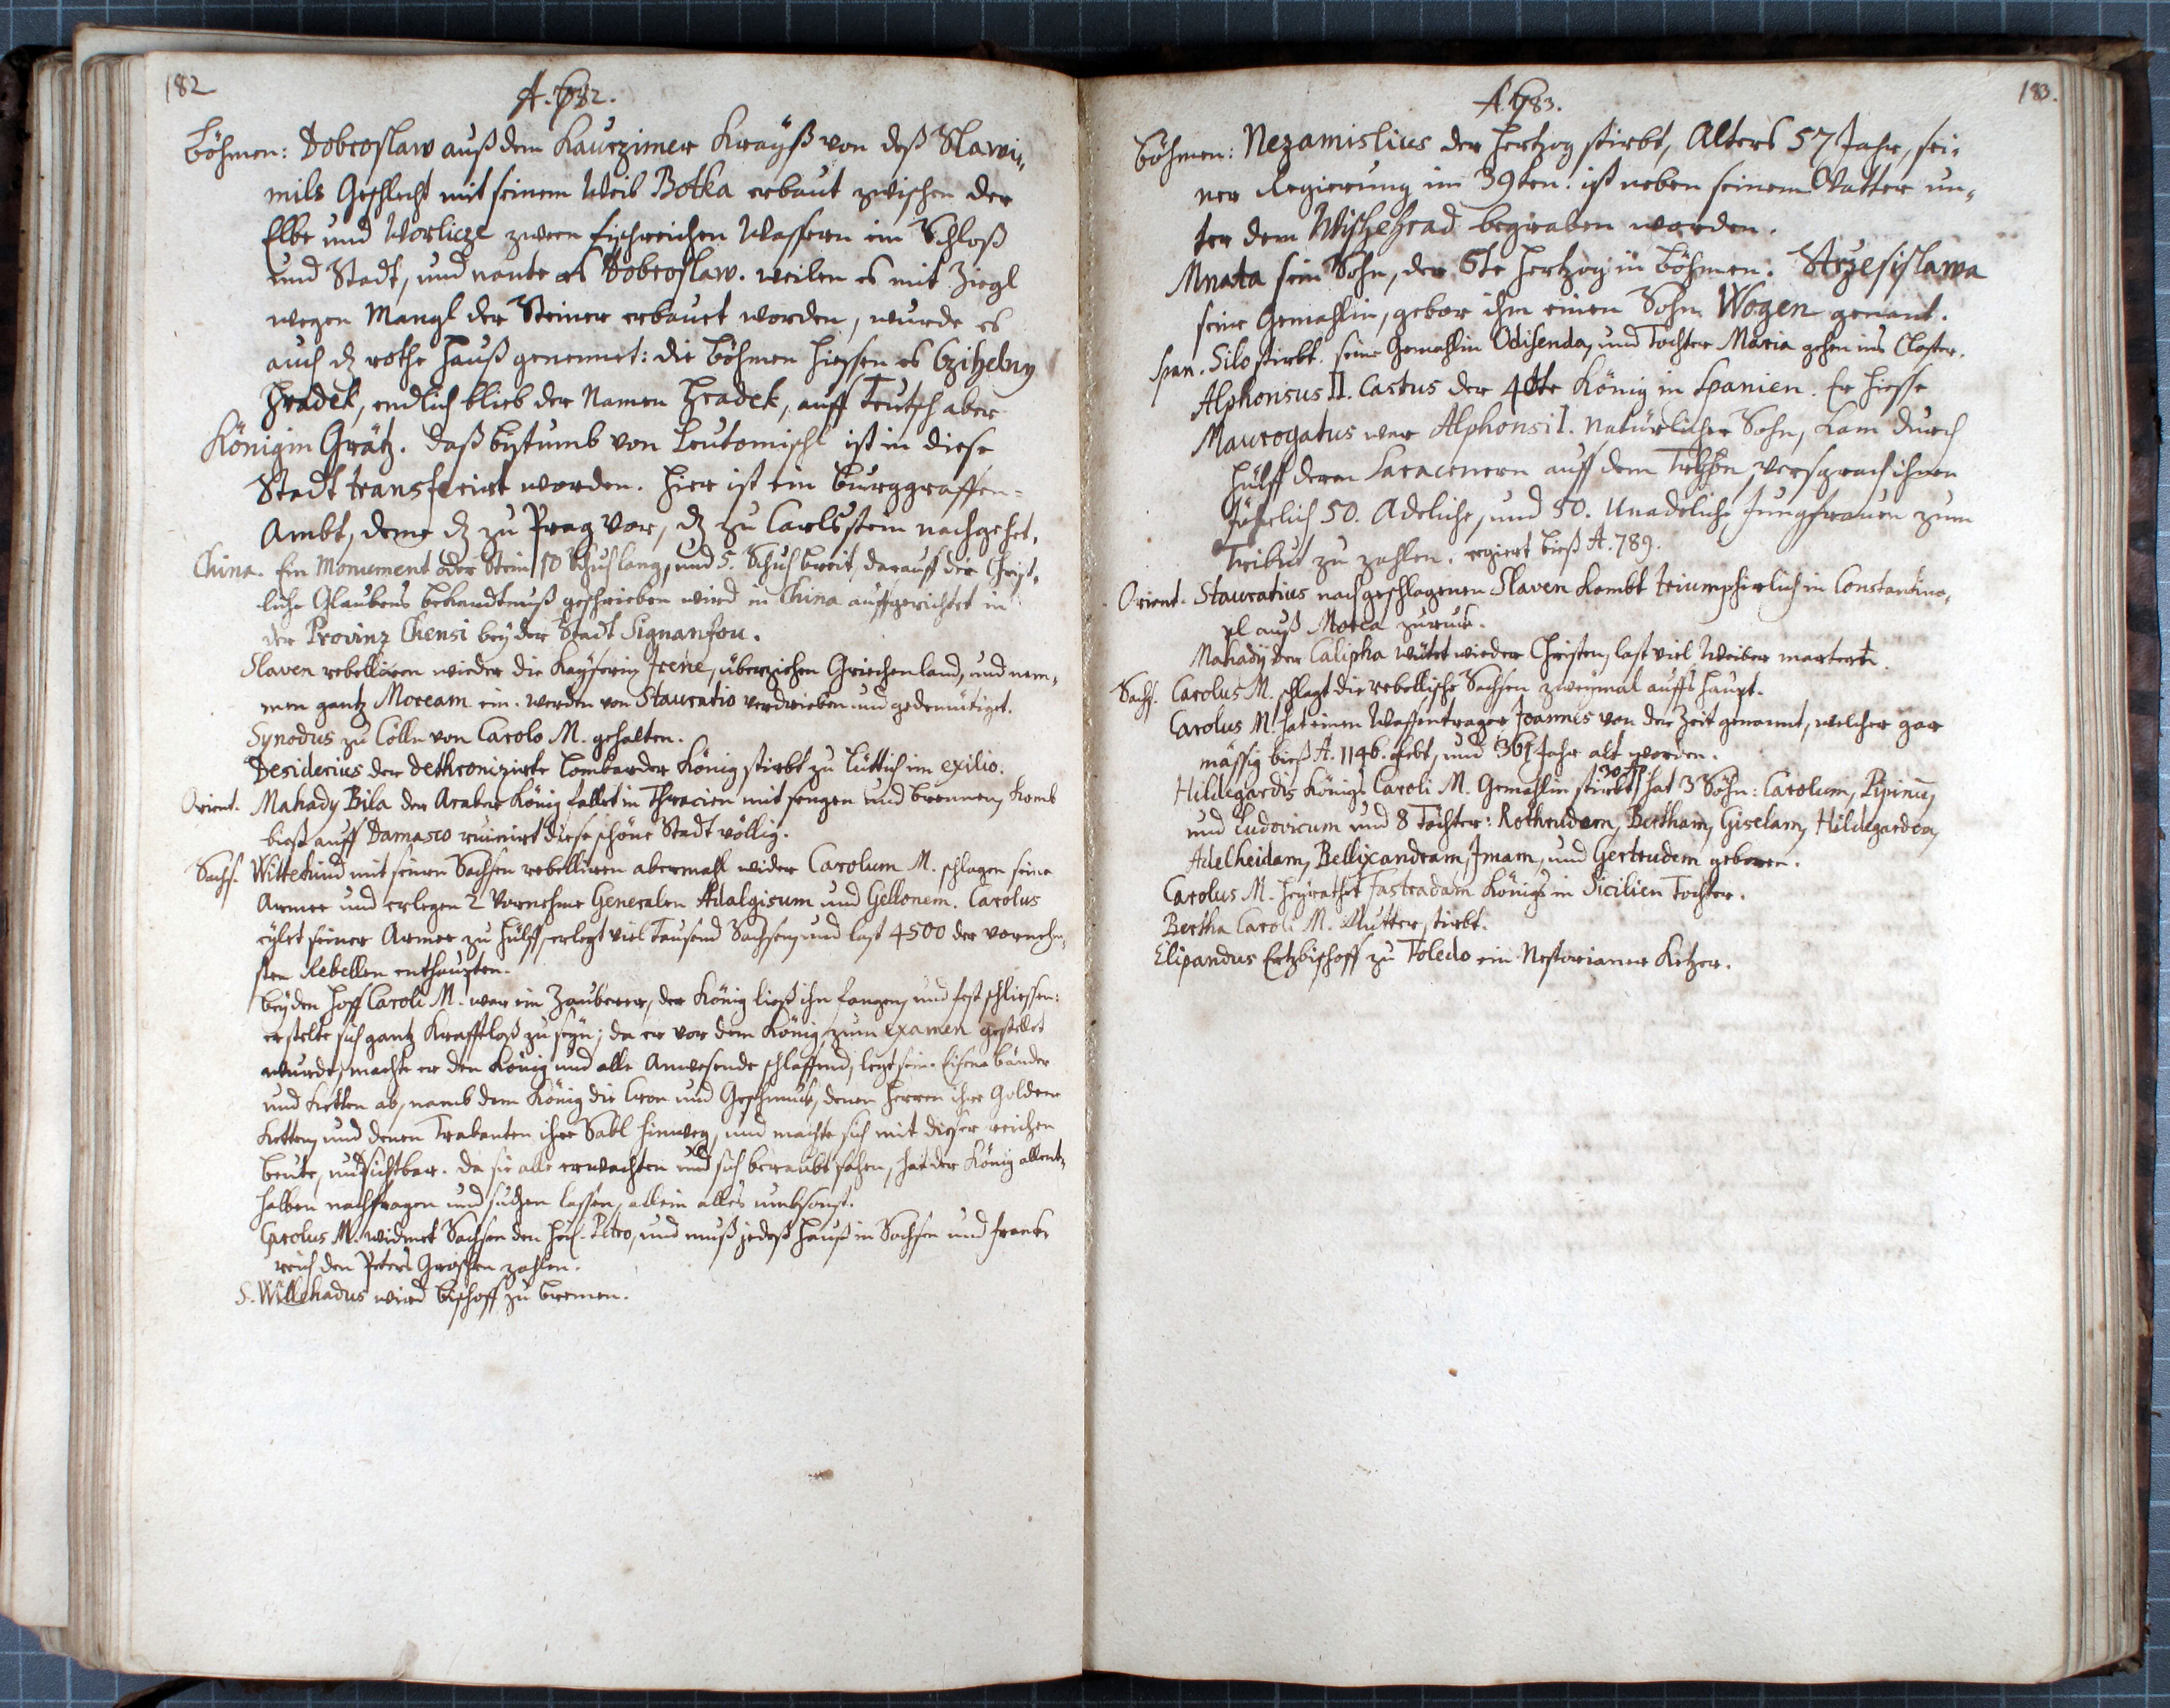 182
A. 782.
Böhmen: Dobroslaw auß dem Kaurzimer Krayß von deß Slawi-
mils Geschlecht mit seinem Weib Botka erbaut zwischen der
Elbe und Worlicze zween fischreichen Wassern ein Schloß
und Stadt, und nante es Dobroslaw. weilen es mit Ziegl
wegen Mangl der Steiner erbauet worden, wurde es
auch dz rothe Hauß genennet: die Böhmen hiessen es Czihelny
Hradek, endlich blieb der Namen Hradek, auff Teutsch aber
Königin Grätz. Daß Bystumb von Leutomischl ist in diese
Stadt transferirt worden. Hier ist ein Burggraffen-
Ambt, deme dz zu Prag vor, dz zu Carlsstein nachgehet.
China. Ein Monument oder Stein 10 Schuh lang, und 5. Schuh breit, darauff die Christ-
liche Glaubens bekandtnuß geschrieben wird in China auffgerichtet in
der Provinz Chensi bey der Stadt Siganfou.
Slaven rebelliren wieder die Kayserin Irene, überziehen Griechenland, und nem-
men gantz Moream ein. werden von Stauratio vertrieben und gedemütiget.
Synodus zu Cölln von Carolo M. gehalten.
Desiderius der dethronizirte Lombarder König stirbt zu Lüttich im exilio.
Orient. Mahady Bila der Araber König fallet in Thracien mit sengen und brennen, komb
bieß auff Damasco ruinirt diese schöne Stadt völlig.
Sachs. Wittekind mit seinen Sachsen rebelliren abermahl wider Carolum M. schlagen seine
Armee und erlegen 2 Vornehme Generalen Adalgisum und Gellonem. Carolus
eylet seiner Armee zu Hülff, erlegt viel Tausend Sachsen, und last 4500 der vornehm-
sten Rebellen enthaupten.
bey den Hoff Caroli M. war ein Zauberer, der König ließ ihn fangen, und fest schliessen:
er stelte sich gantz Krafftloß zu seyn; da er vor dem König, zum examen gestellet
wurde, machte er den König und alle Anwesende schlaffend, legt sein Eisene bänder
und Ketten ab, namb dem König die Cron und Geschmuck, denen Herren ihre Goldene
Ketten, und denen Trabanten ihre Sabl hinweg, und machte sich mit dieser reichen
beute, unsichtbar. da sie alle erwachten und sich beraubt sahen, hat der König allent-
halben nachfragen und suchen lassen, allein alles umbsonst.
Carolus M. widmet Sachsen den Heil. Petro, und muß jedeß Hauß in Sachsen und Franck-
reich den Peters Groschen zahlen.
S. Willehadus wird Bischoff zu Bremen.
183.
A. 783.
Böhmen: Nezamislius der Hertzog stirbt, Alters 57 Jahr, sei-
ner Regierung im 39ten. ist neben seinem Vatter un-
ter dem Wischehrad begraben worden.
Mnata sein Sohn, der 5te Hertzog in Böhmen. Strzesislawa
seine Gemahlin, gebar ihm einen Sohn Wogen genant.
Span. Silo stirbt. seine Gemahlin Odisenda, und Tochter Maria gehen ins Closter.
Alphonsus II. Castus der 4tte König in Spanien. Er hiesse
Maurogatus war Alphonsi I. Natürlicher Sohn, kam durch
Hülff deren Saracenern auff dem Trohn, versprach ihnen
Jährlich 50. Adeliche, und 50. Unadeliche Jungfrauen zum
Tribut zu zahlen. regiert bieß A. 789.
Orient. Stauratius nach geschlagenen Slaven kombt triumphirlich in Constantino-
pl auß Morea zuruck.
Mahady der Calipha wütet wieder Christen, last viel Weiber martern.
Sachs. Carolus M. schlagt die rebellische Sachsen zweymal auffs Haupt.
Carolus M. hat einen Waffentrager Joannes von der Zeit genannt, welcher gar
mässig bieß A. 1146. gelebt, und 361 Jahr alt worden.
Hildegardis Königs Caroli M. Gemahlin stirbt 30 Ap. hat 3 Söhn: Carolum, Pipinum,
und Ludovicum und 8 Töchter: Rothrudem, Bertham, Giselam, Hildegarden,
Adelheidam, Bellixandram, Imam, und Gertrudem geboren.
Carolus M. heyrathet Fastradam Königs in Sicilien Tochter.
Bertha Caroli M. Mutter stirbt.
Elipandus Ertzbischoff zu Toledo ein Nestorianer Ketzer.